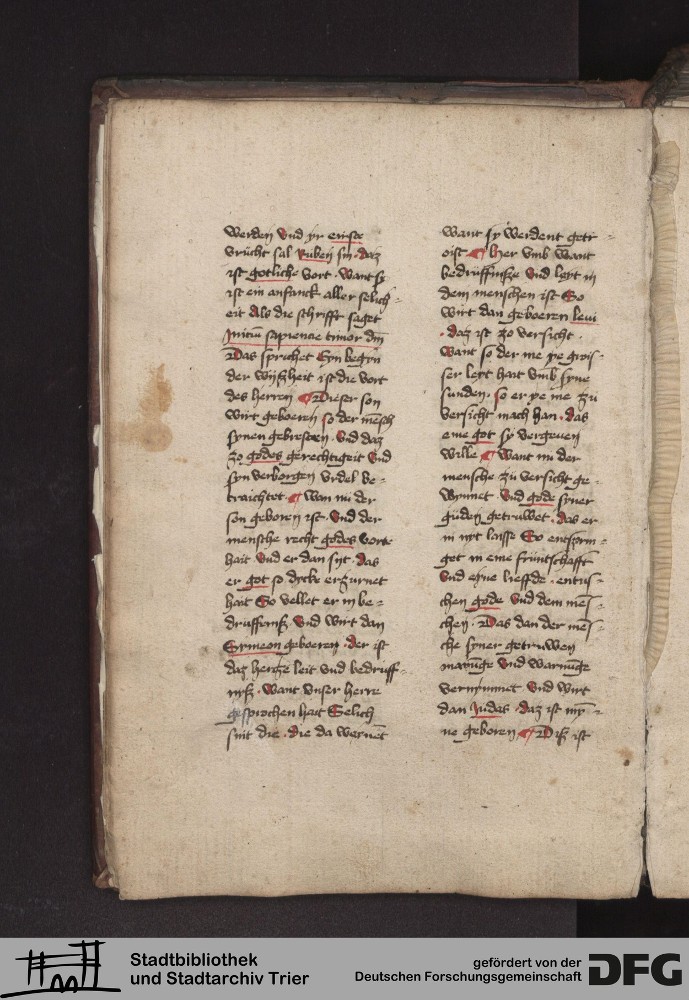 werden vnd yr eirste
vrucht sal Ruben sin . daz
ist gotliche vort . want sy
ist ein anfanck aller selich-
eit Als die schrifft saget
Iniciū sapiencie timor dni
Das sprichet Eyn begyn
der wyßheit ist die vort
des herren Dieser son
wirt geboeren so der mesch
synen gebresten . vnd daz
zo godes gerechtigeit vnd
syn verborgen vrdel be-
traichtet . Wan nu der
son geboren ist . vnd der
mensche recht godes vorte
hait vnd er dan siit . das
er got so dycke erzurnet
hait So vellet er in be-
druffniß . vnd wirt dan
Symeon geboeren . der ist
daz hertze leit vnd bedruff-
niß . want vnser herre
gesprochen hait Selich
sint die . die da wernet
want sy werdent getr-
oist Her vmb want
bedruffniße vnd leyt in
dem menschen ist So
wirt dan geboeren leui
. daz ist zo versicht .
want so der me ye grois-
ser leyt hait vmb syne
sunden . so er ye me zu
versicht mach han . das
eme got sy vergeuen
wille want nu der
mensche zu versicht ge-
wynnet . vnd gode syner
guden getruwet . das er
in nyt laisse So entsprin-
get in eme fruntschafft
vnd eyne lieffde . entus-
chen gode vnd dem mes-
chen . Das dan der mes-
che syner getruwen
manuge vnd warnuge
vernymmet vnd wirt
dan Judas . daz ist myn-
ne geboren Diß ist
Stadtbibliothek
und Stadtarchiv Trier
gefördert von der
Deutschen Forschungsgemeinschaft
DFG